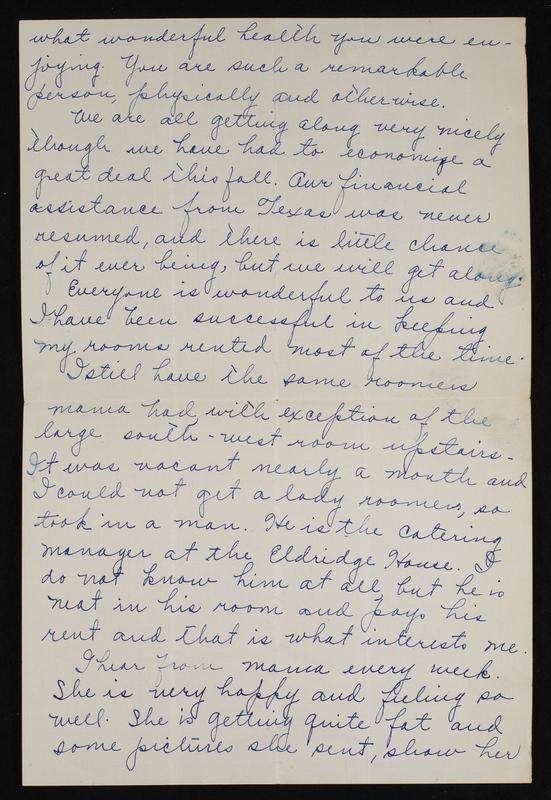 what wonderful health you were en-
joying. You are such a remarkable
person, physically and otherwise.
We are all getting along very nicely
though we have had to economize a
great deal this fall. Our financial
assistance from Texas was never
resumed, and there is little chance
of it ever being, but we will get along.
Everyone is wonderful to us and
I have been successful in keeping
my rooms rented most of the time.
I still have the same roomers
mama had with exception of the
large south-west room upstairs-
It was vacant nearly a month and
I could not get a lady roomer, so
took in a man. He is the catering
manager at the Eldridge House. I
do not know him at all, but he is
neat in his room and pays his
rent and that is what interests me.
I hear from mama every week.
She is very happy and feeling so
well. She is getting quite fat and
some pictures she sent, show her